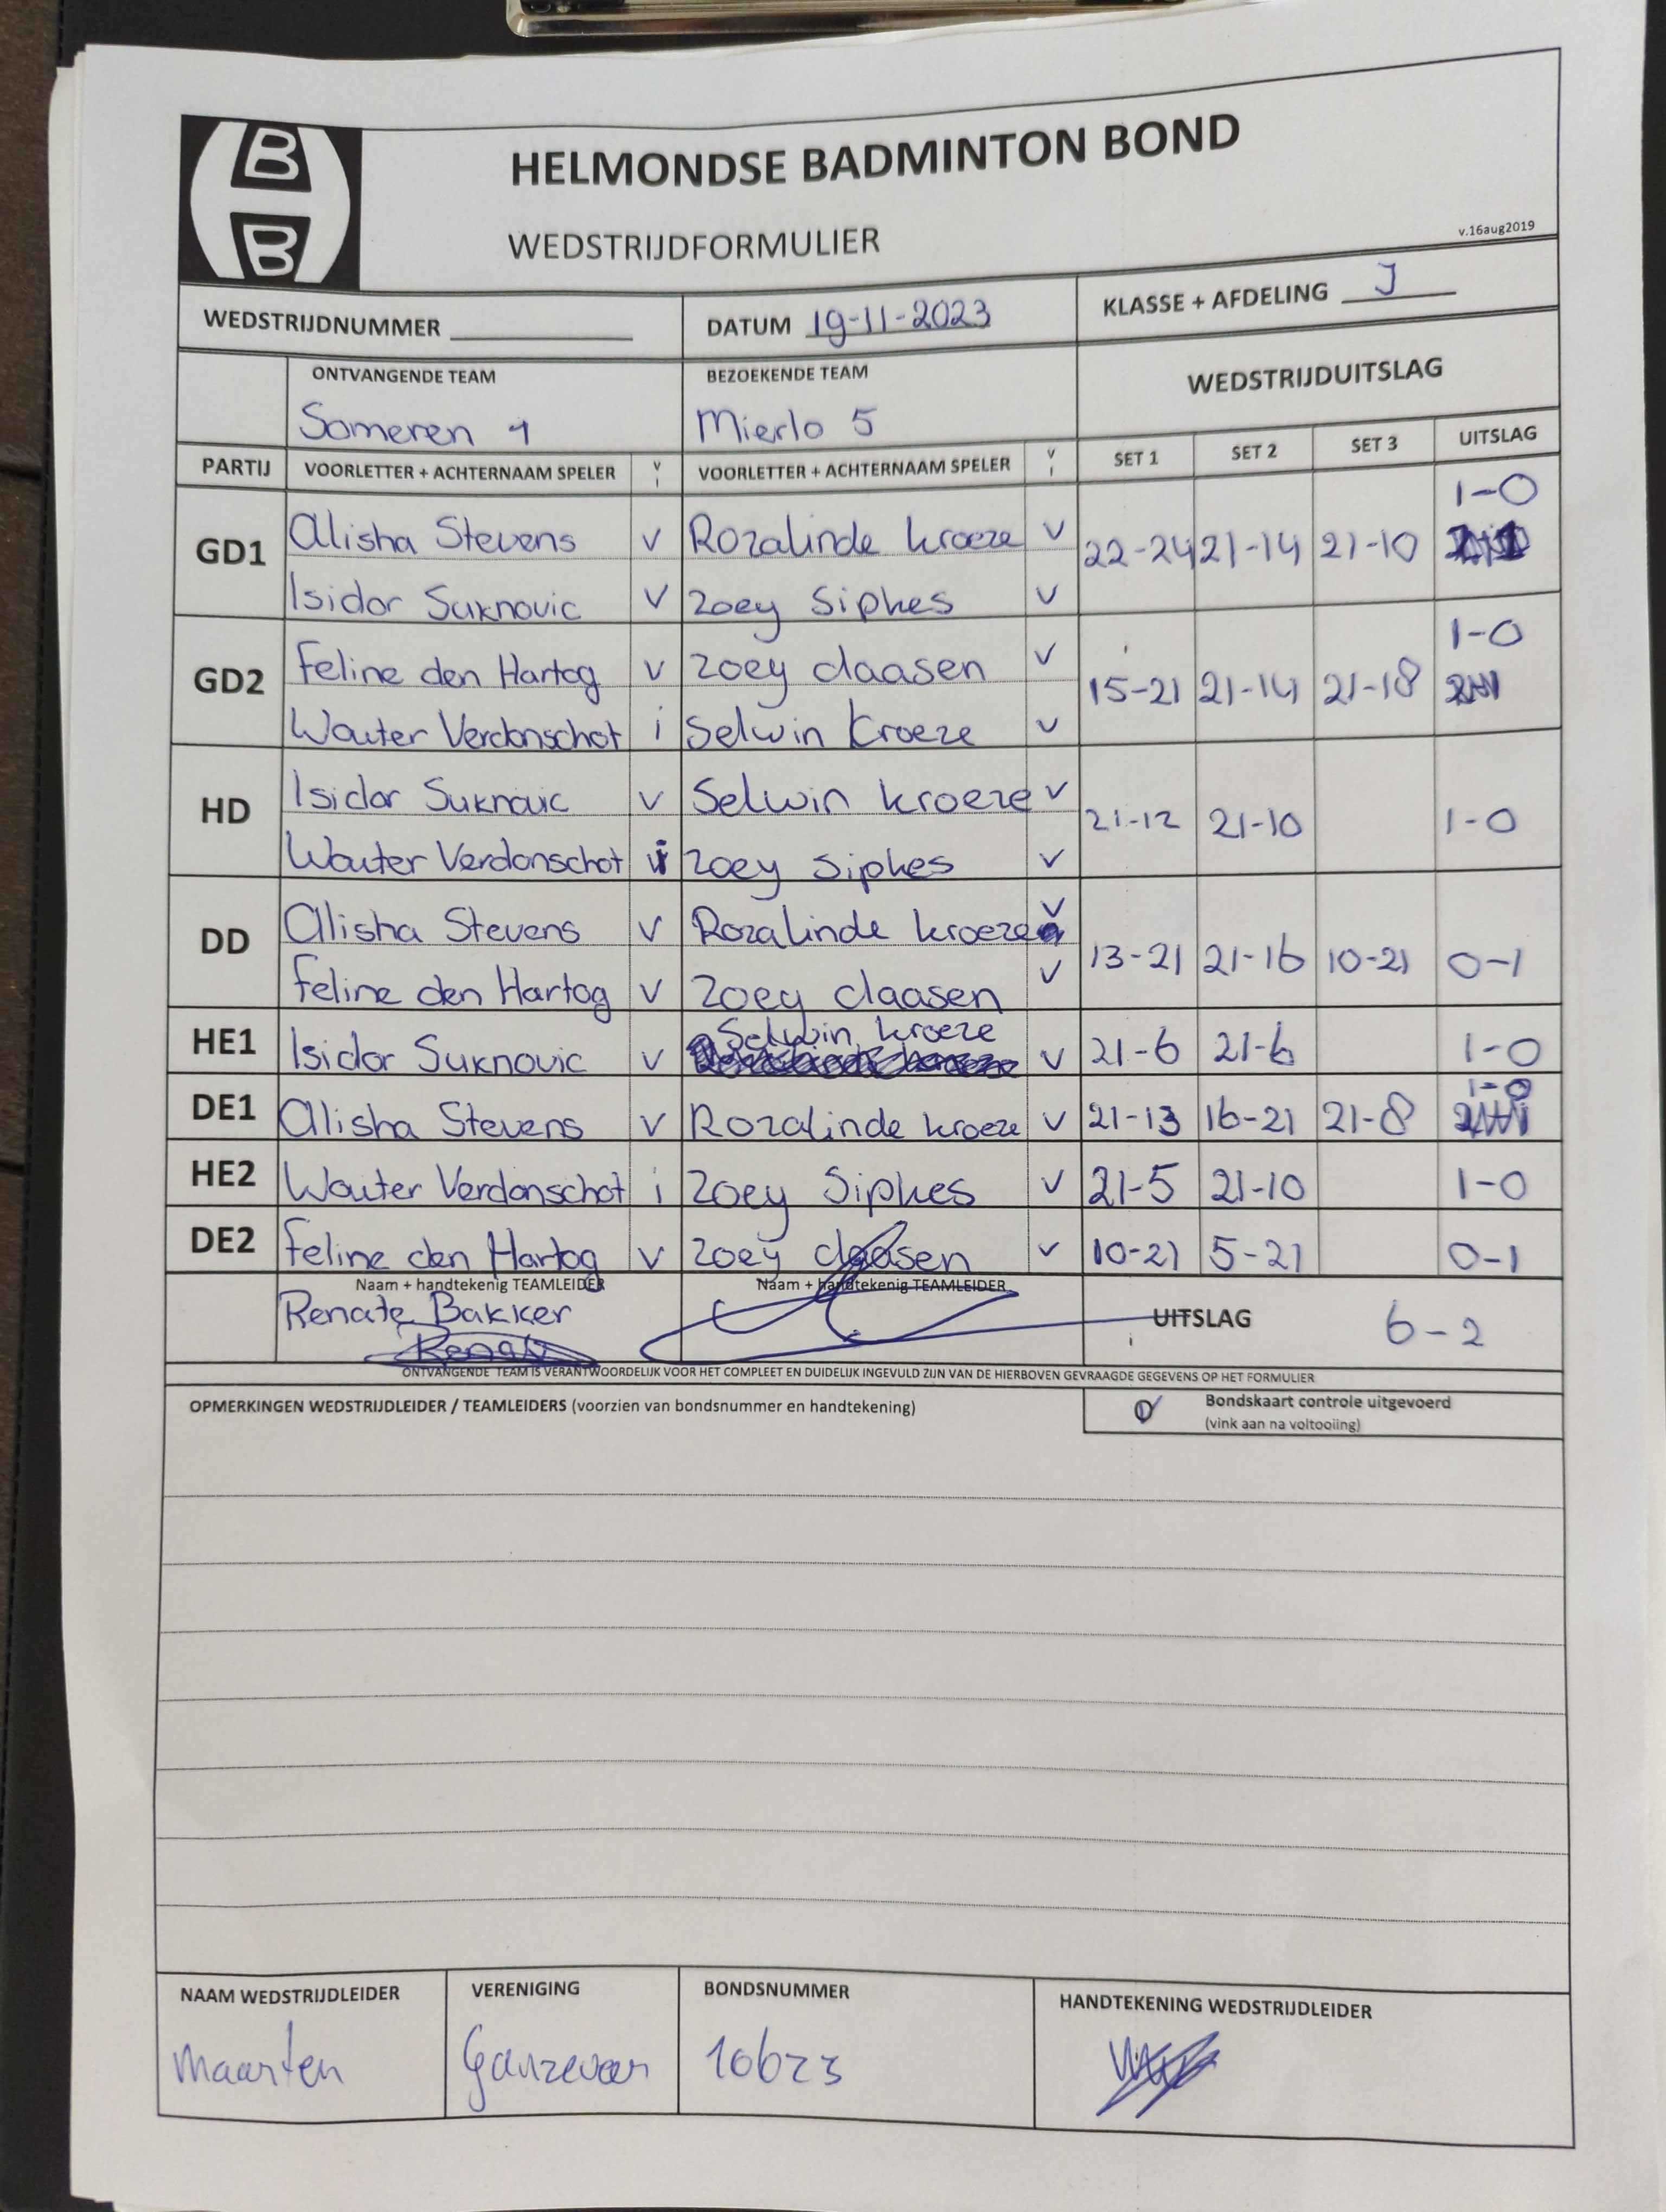 B
B
HELMONDSE BADMINTON BOND
WEDSTRIJDFORMULIER
v.16aug2019
WEDSTRIJDNUMMER
DATUM 19-11-2023
KLASSE + AFDELING J
ONTVANGENDE TEAM
BEZOEKENDE TEAM
WEDSTRIJDUITSLAG
Someren 1
Mierlo 5
PARTIJ VOORLETTER + ACHTERNAAM SPELER V I VOORLETTER + ACHTERNAAM SPELER V I SET 1 SET 2 SET 3 UITSLAG
1-0
GD1 Alisha Stevens v Rozalinde kroeze v 22-24 21-14 21-10
Isidor Suknovic v Zoey Siphes v
1-0
GD2 Feline den Hartog v Zoey claasen v 15-21 21-14 21-18
Wouter Verdonschot i Selwin Kroeze v
HD Isidor Suknovic v Selwin kroeze v 21-12 21-10 1-0
Wouter Verdonschot i Zoey Siphes v
DD Alisha Stevens v Rozalinde kroeze v 13-21 21-16 10-21 0-1
Feline den Hartog v Zoey claasen v
HE1 Isidor Suknovic v Selwin kroeze v 21-6 21-6 1-0
DE1 Alisha Stevens v Rozalinde kroeze v 21-13 16-21 21-8 1-0
HE2 Wouter Verdonschot i Zoey Siphes v 21-5 21-10 1-0
DE2 Feline den Hartog v Zoey claasen v 10-21 5-21 0-1
Naam + handtekenig TEAMLEIDER
Naam + handtekenig TEAMLEIDER
Renate Bakker
UITSLAG 6-2
ONTVANGENDE TEAM IS VERANTWOORDELIJK VOOR HET COMPLEET EN DUIDELIJK INGEVULD ZIJN VAN DE HIERBOVEN GEVRAAGDE GEGEVENS OP HET FORMULIER
OPMERKINGEN WEDSTRIJDLEIDER / TEAMLEIDERS (voorzien van bondsnummer en handtekening)
Bondskaart controle uitgevoerd
(vink aan na voltooiing)
NAAM WEDSTRIJDLEIDER
VERENIGING
BONDSNUMMER
HANDTEKENING WEDSTRIJDLEIDER
Maarten
10623